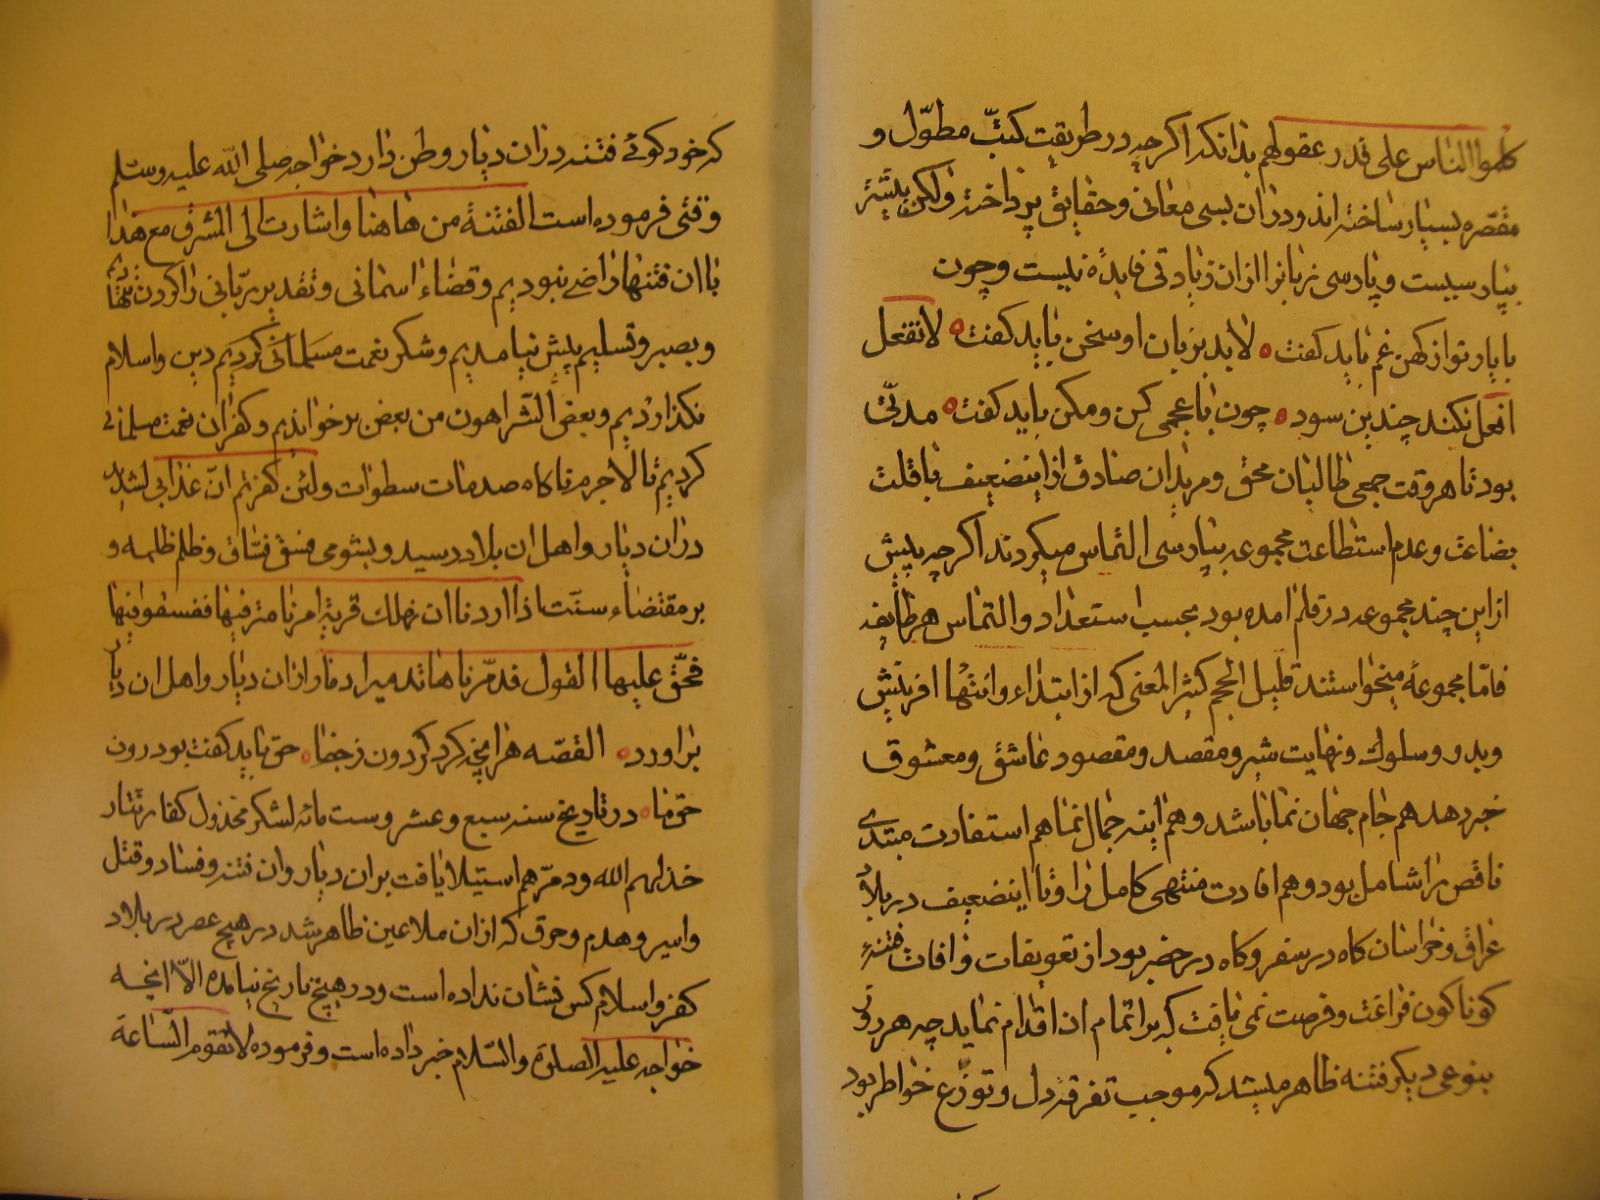 كلموا الناس على قدر عقولهم بدانكه اكرچه در طريقت كتب مطوّل و
بسيار ساخته اند و دران بسى معانى و حقايق پرداخته وليكن بيشتر
بتازيست و پارسى زبانرا ازان زيادتى فايدة نيست و چون
با يار نو از كهن غم بايد كفت ه لابد بزبان او سخن بايد كفت ه لا تفعل
افعل نكند چندين سود ه چون با عجمى كن و مكن بايد كفت ه مدتى
بود تا هر وقت جمعى طالبان محق و مريدان صادق ازين ضعيف با قلت
بضاعت و عدم استطاعت مجموعه بپارسى التماس ميكردند اكرچه پيش
ازين چند مجموعه در قلم امده بود بحسب استعداد و التماس هر طايفه
فامّا مجموعۀ ميخواستند قليل الحجم كثير المعنى كه از ابتداء و انتهاء افرينش
و بدو سلوك و نهايت سير و مقصد و مقصود عاشق و معشوق
خبر دهد هم جام جهان نما باشد و هم اينه جمال نما هم استفادت مبتدى
ناقص را شامل بود و هم افادت منتهى كامل را و تا اين ضعيف در بلاد
عراق و خراسان كاه در سفر و كاه در حضر بود از تعويقات و افات فتنۀ
كوناكون فراغت و فرصت نمى يافت كه بر اتمام ان اقدام نمايد چه هر روز
بنوعى ديكر فتنه ظاهر ميشد كه موجب تفرقه دل و توزّع خواطر بود
كه خود كوئى فتنه دران ديار وطن دارد خواجه صلى الله عليه وسلم
وقتى فرموده است الفتنة من هاهنا و اشارت الى المشرق مع هذا
با ان فتنها راضى نبوديم و قضاء اسمانى و تقدير ربّانى را كردن ننهاديم
و بصبر و تسليم پيش نيامديم و شكر نعمت مسلمانى كرديم دين و اسلام
نكذارديم و بعض الشّر اهون من بعض بر خوانديم و كفران نعمت مسلمانى
كرديم تا لاجرم ناكاه صدمات سطوات و لئن كفرتم انّ عذابى لشديد
دران ديار و اهل ان بلاد در رسيد و بشومى فسق فسّاق و ظلم ظلمه و
بر مقتضاء سنّت اذا اردنا ان نهلك قرية امرنا مترفيها ففسقوا فيها
فحقّ عليها القول فدمّرناها تدميرا دمار ازان ديار و اهل ان ديار
براورد ه القصّه هر انچه كرد كردون ز جفا ه حق بايد كفت بود درون
حق ما ه در تاريخ سنه سبع و عشر و ست مائه لشكر مخذول كفار تتار
خذلهم الله و دمّرهم استيلا يافت بران ديار و ان فتنه و فساد و قتل
و اسر و هدم و حرق كه ازان ملاعين ظاهر شد در هيچ عصر در بلاد
كفر و اسلام كس نشان نداده است و در هيچ تاريخ نيامده الّا انچه
خواجه عليه الصلوة والسّلام خبر داده است و فرموده لا تقوم السّاعة